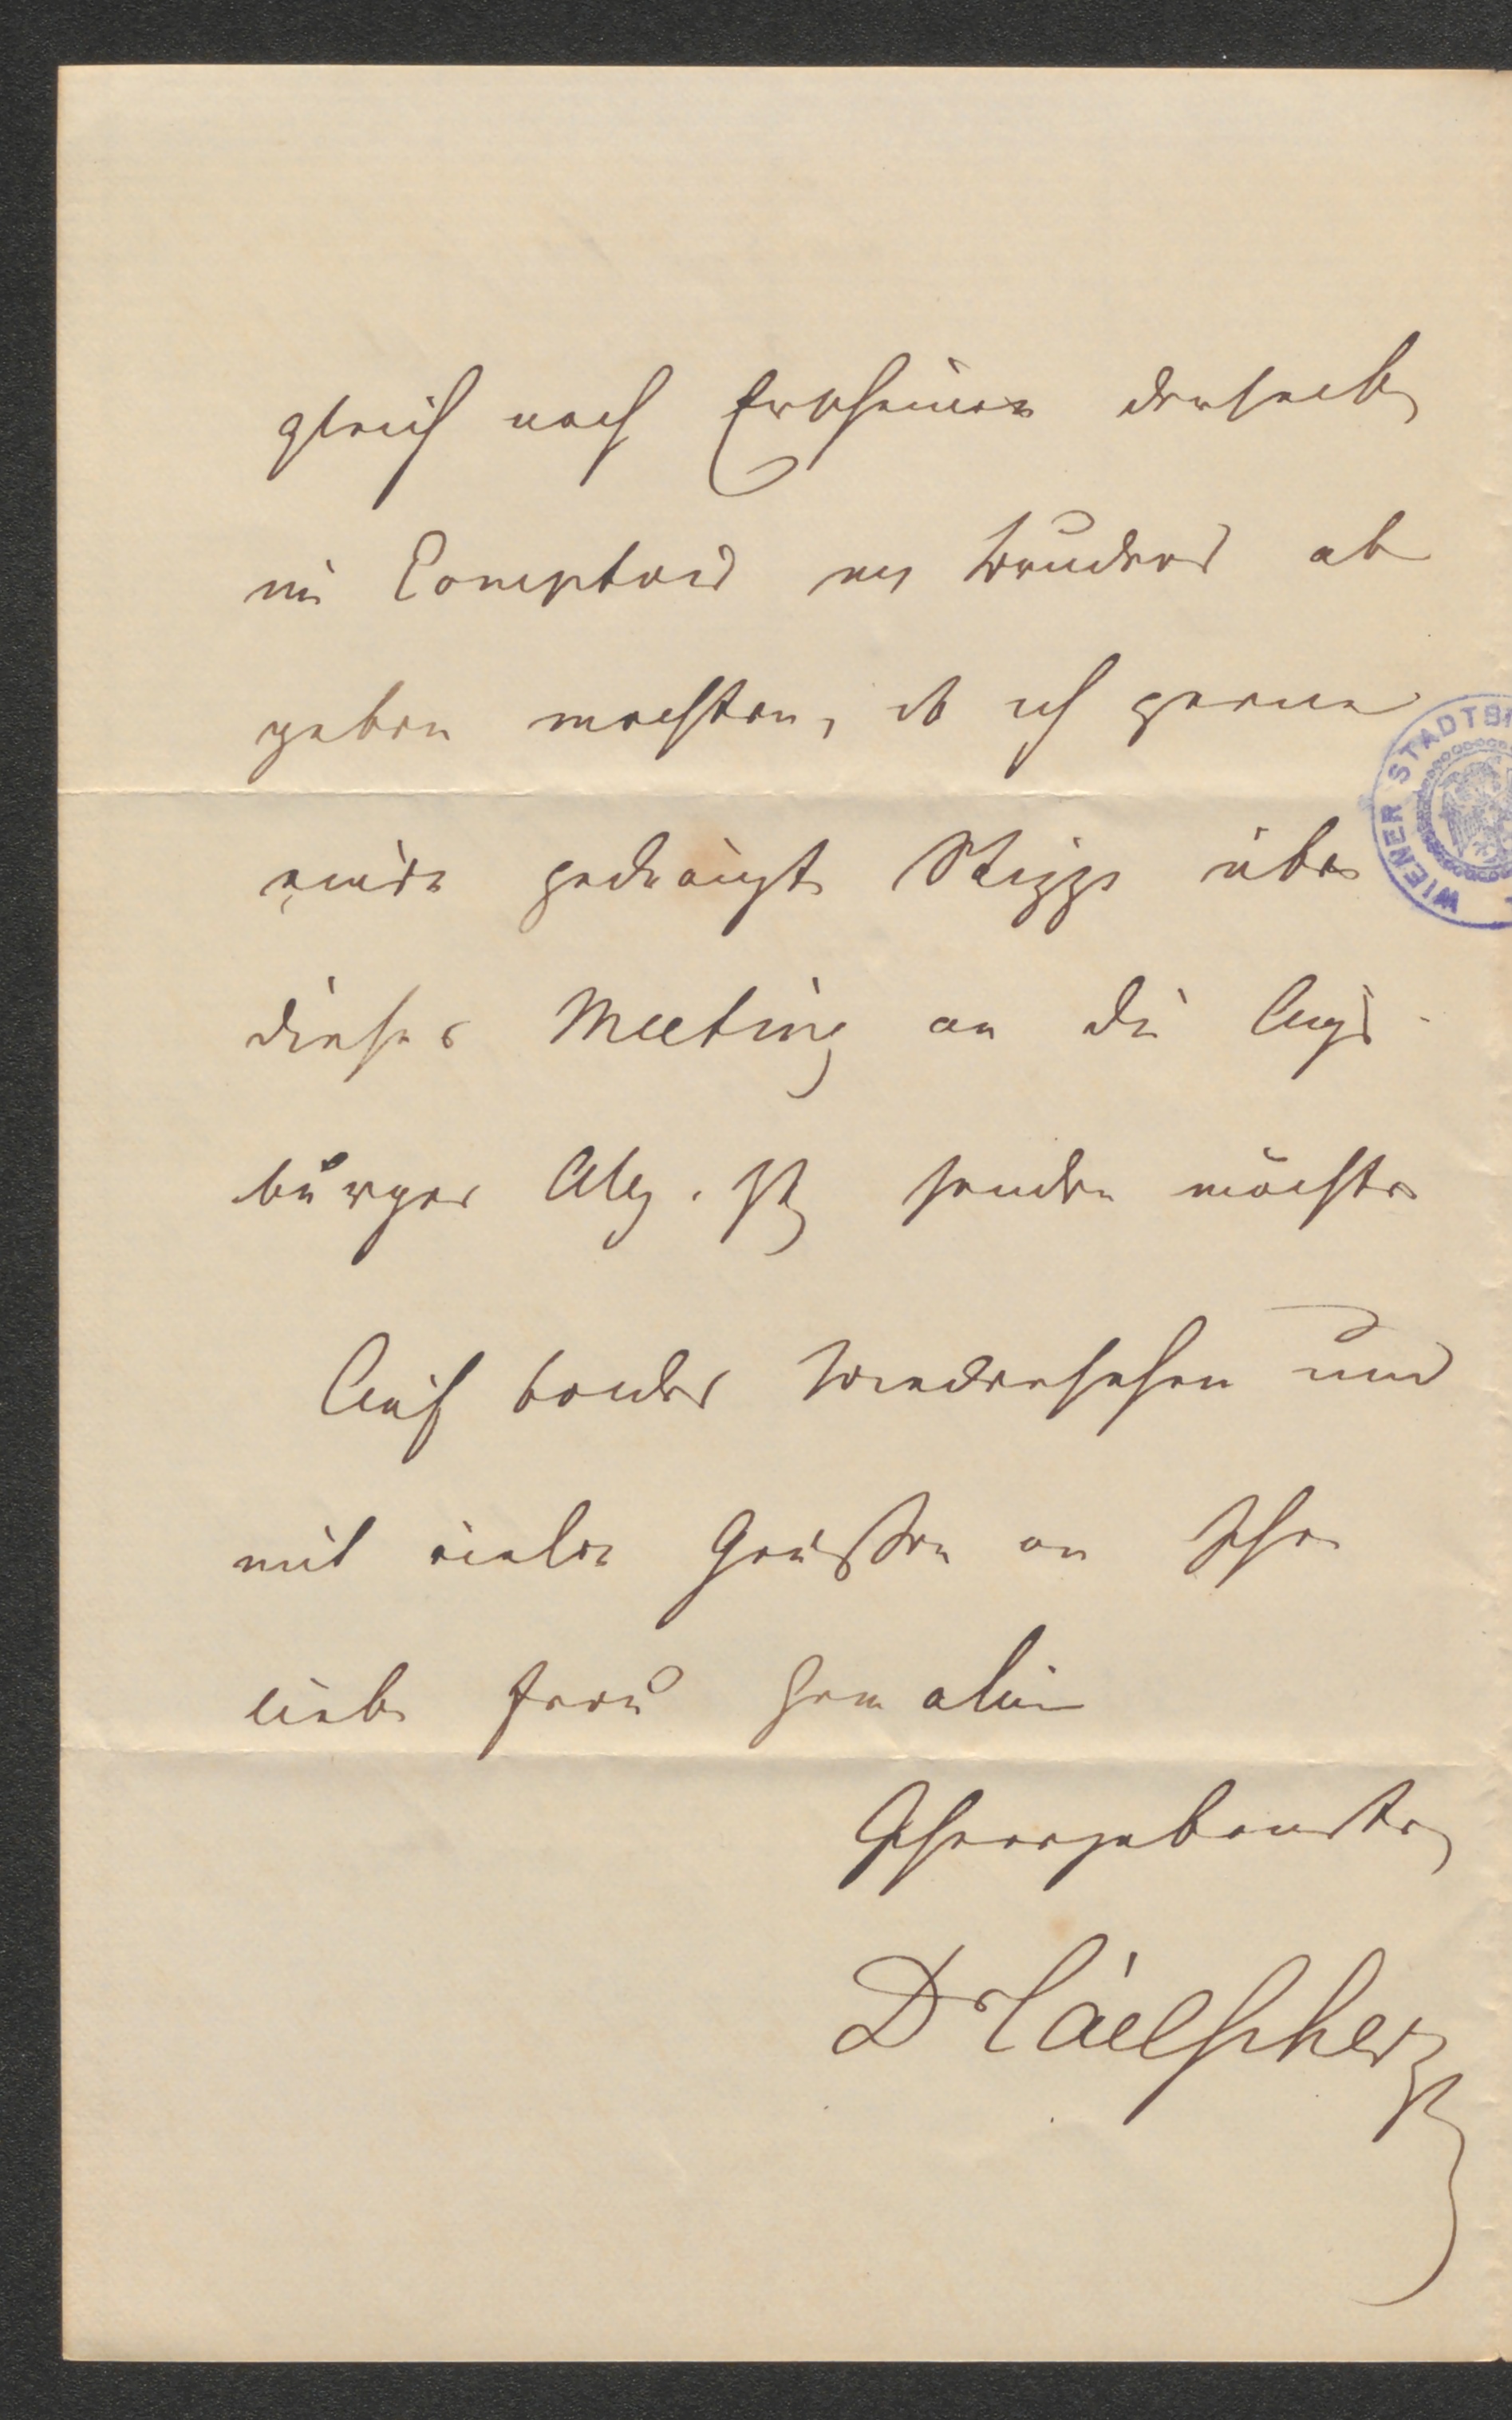 gleich nach Erscheinen derselb
im Comptoir m Bruders ab
geben mochten, da ich gerne
eine gedrängte Skizze über
dieses Meeting an die Augs-
burger Allg. Ztg senden möchte
Auf baldes Wiedersehen und
mit vielen Grüßen an Ihre
liebe Frau Gemalin
Ihr ergebenster
Dr
WIENER STADTBI